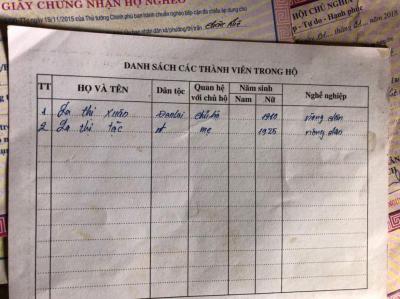 GIẤY CHỨNG NHẬN HỘ NGHÈO
15/11/2015 của Thủ tướng Chính phủ ban hành chuẩn nghèo tiếp cận đa chiều áp dụng cho
HỘI CHỦ NGHĨA
- Tự do - Hạnh phúc
năm 2018
DANH SÁCH CÁC THÀNH VIÊN TRONG HỘ
TT HỌ VÀ TÊN Dân tộc Quan hệ với chủ hộ Năm sinh Nghề nghiệp
Nam Nữ
1 La thi Xuân Đanlai chủ hộ nông dân
2 La thi tặc nt mẹ 1925 nông dân